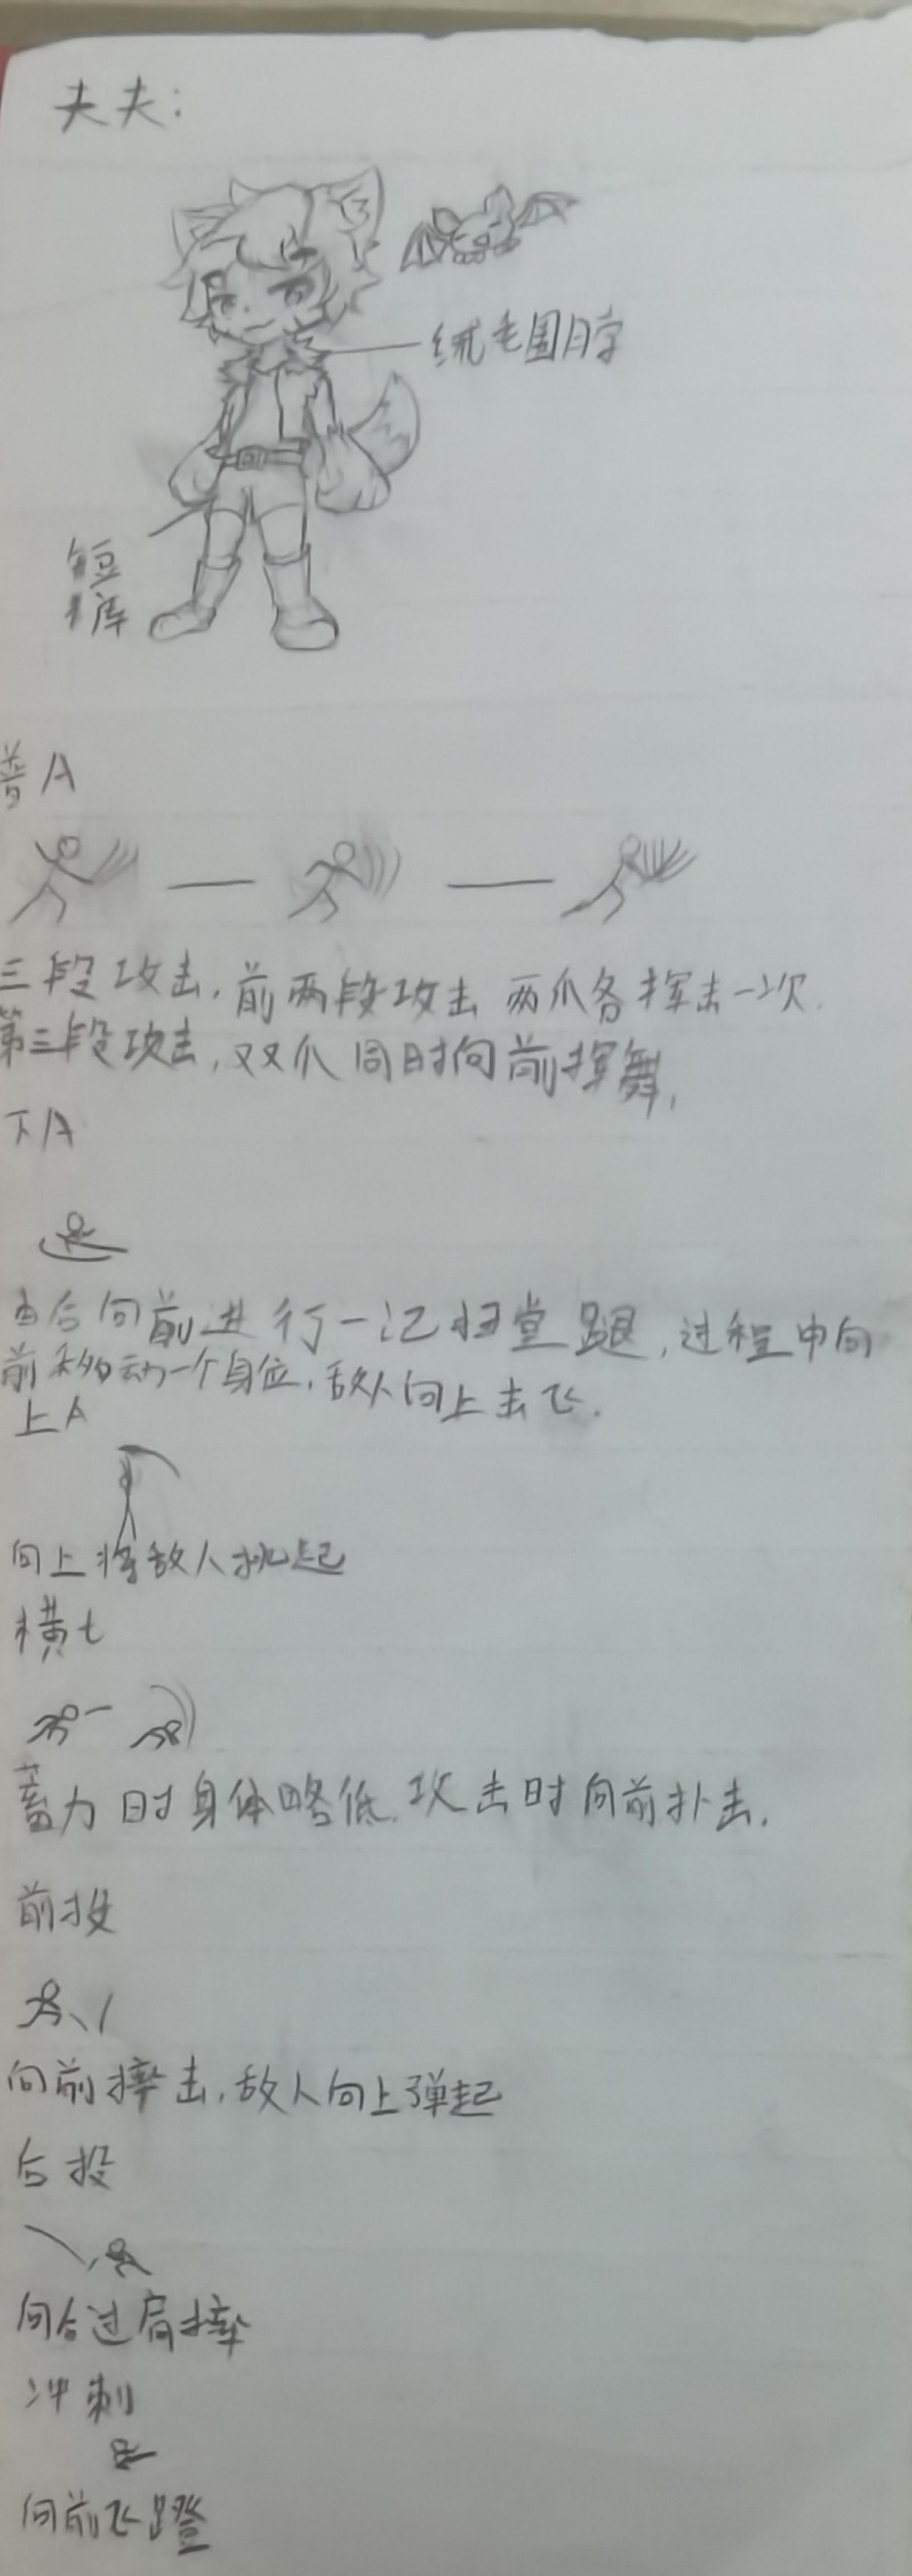 夫夫：
绒毛围脖
短
裤
普A
三段攻击，前两段攻击两爪各挥击一次.
第三段攻击，双爪同时向前挥舞，
下A
由后向前进行一记扫堂腿，过程中向
前移动一个身位，敌人向上击飞.
上A
向上将敌人挑起
横t
蓄力时身体略低，攻击时向前扑击.
前投
向前摔击，敌人向上弹起
后投
向后过肩摔
冲刺
向前飞蹬